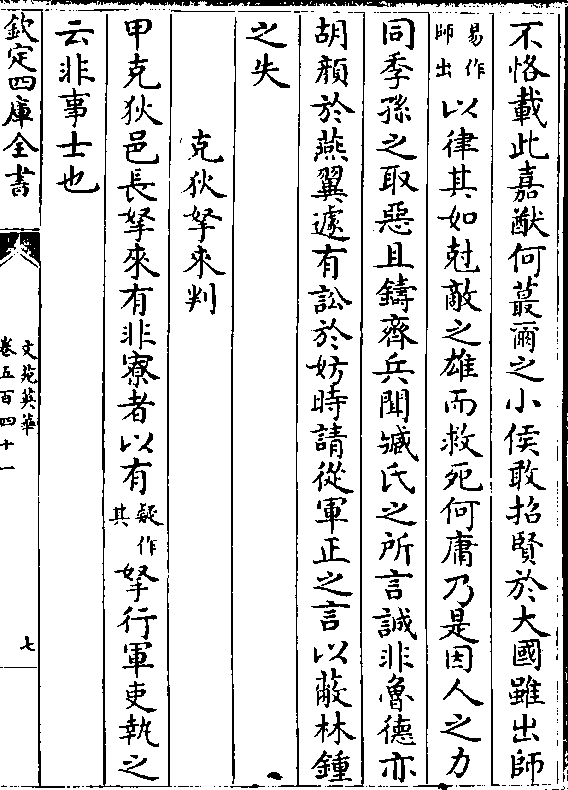 不恪載此嘉猷何蕞爾之小侯敢招賢於大國雖出師
易作師出以律其如尅敵之雄而救死何庸乃是因人之力
同季孫之取惡且鑄齊兵聞臧氏之所言誠非魯德亦
胡顔於燕翼遽有訟於妨時請從軍正之言以蔽林鍾
之失
克狄孥來判
甲克狄邑長孥來有非寮者以有疑作其孥行軍吏執之
云非事士也
欽定四庫全書
文苑英華
卷五百四十一
七